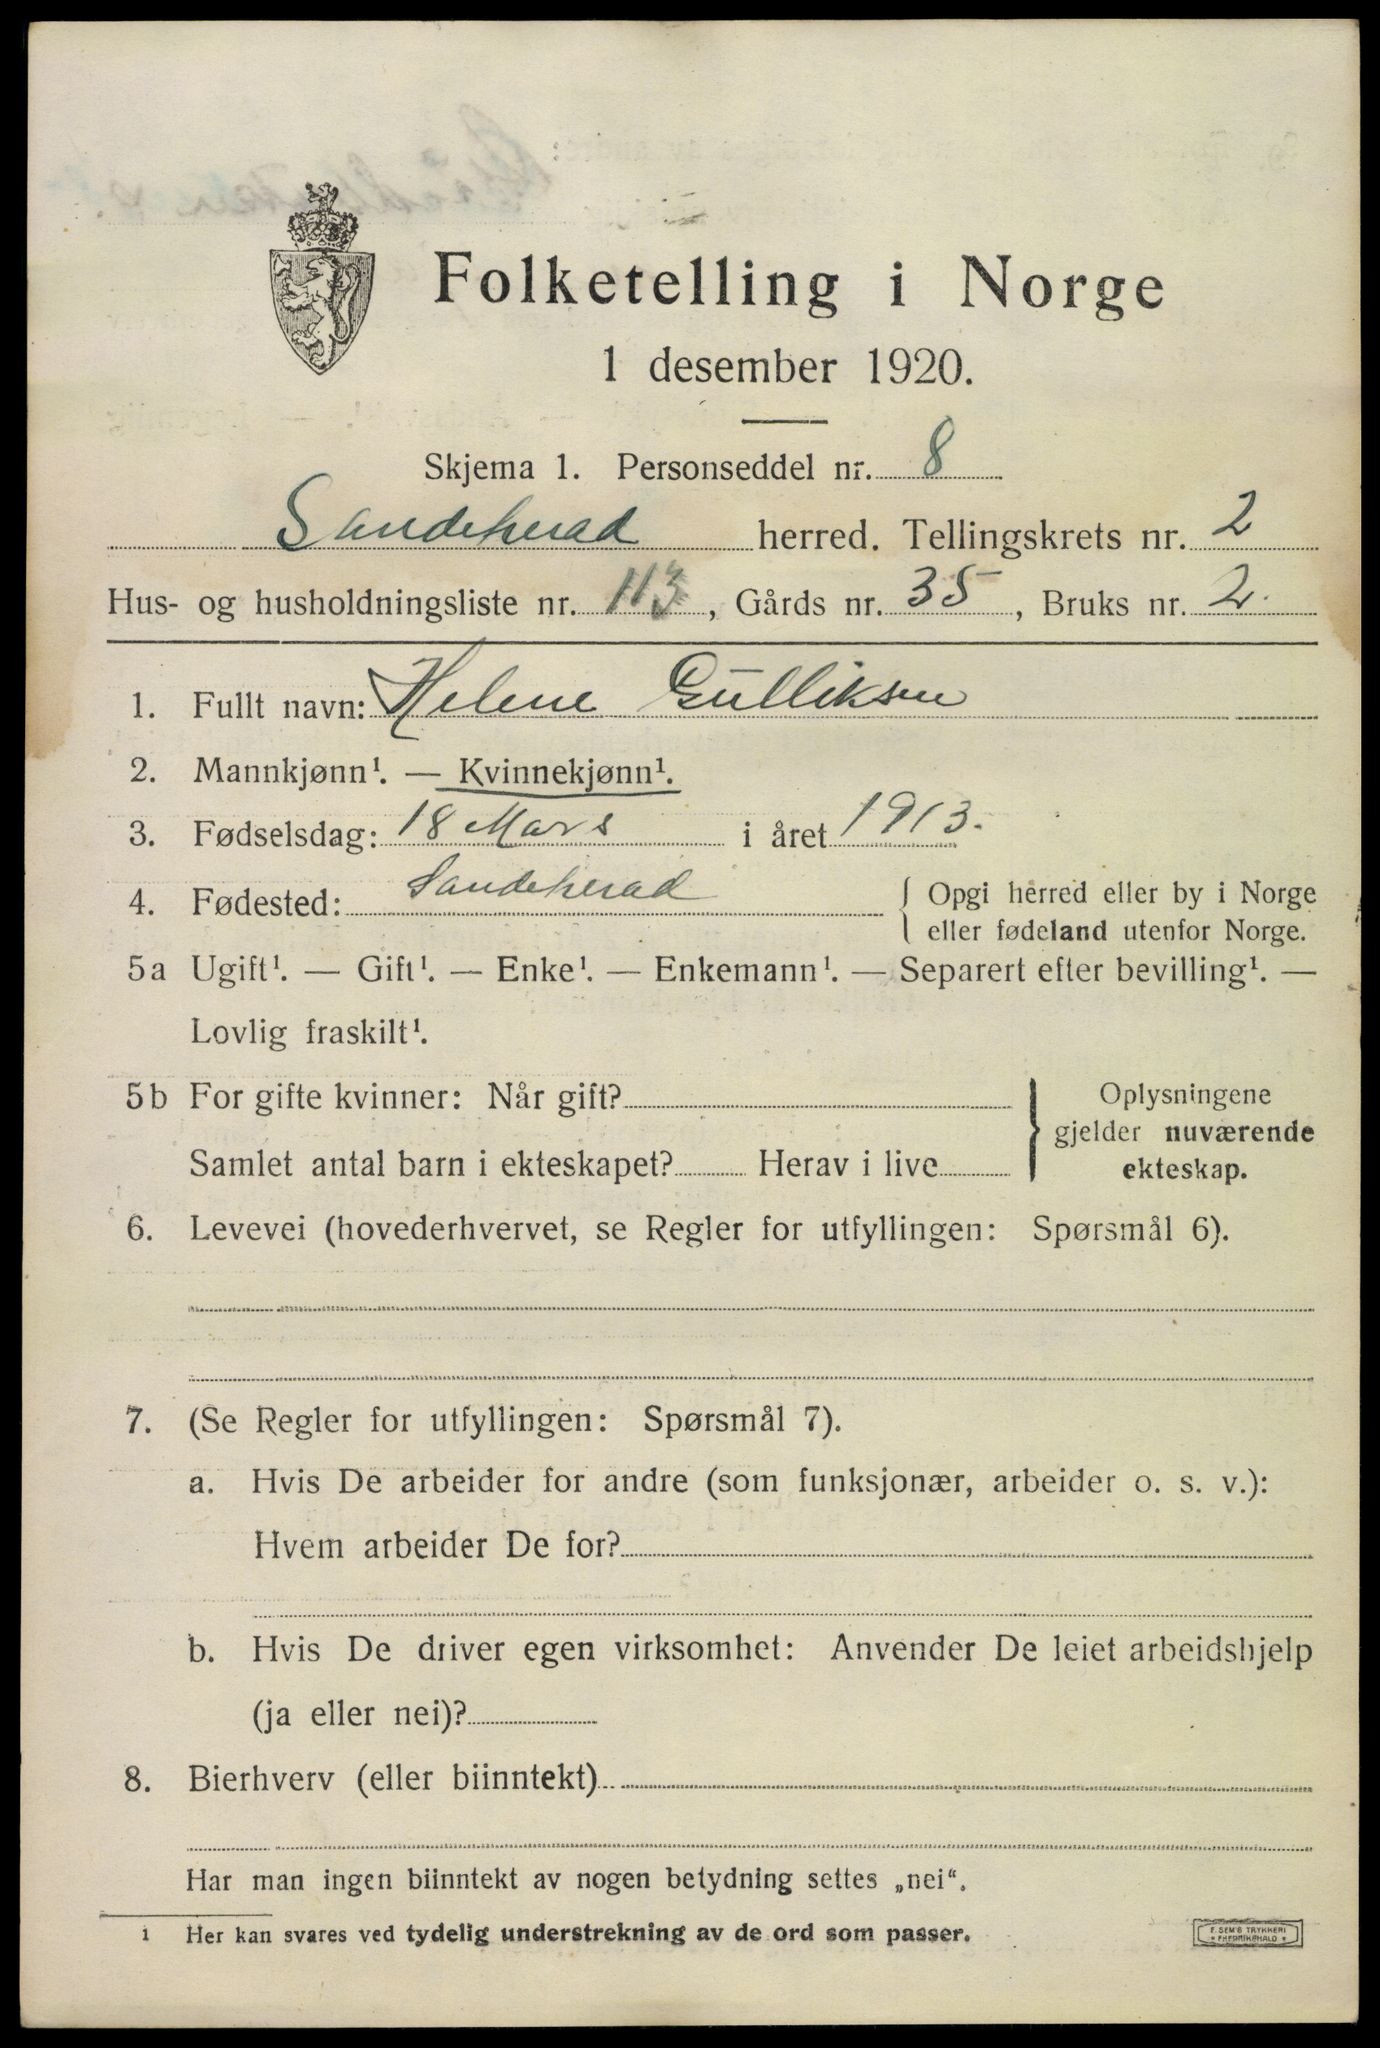 Folketelling i Norge
1 desember 1920.
Skjema 1. Personseddel nr. 8
Sandeherad herred. Tellingskrets nr. 2
Hus- og husholdningsliste nr. 113, Gårds nr. 35, Bruks nr. 2.
1. Fullt navn: Helene Gulliksen
2. Mannkjønn¹. — Kvinnekjønn¹.
3. Fødselsdag: 18 Mars i året 1913.
4. Fødested: Sandeherad { Opgi herred eller by i Norge
eller fødeland utenfor Norge.
5a Ugift¹. — Gift¹. — Enke¹. — Enkemann¹. — Separert efter bevilling¹. —
Lovlig fraskilt¹.
5b For gifte kvinner: Når gift? } Oplysningene
gjelder nuværende
Samlet antal barn i ekteskapet? Herav i live
ekteskap.
6. Levevei (hovederhvervet, se Regler for utfyllingen: Spørsmål 6).
7. (Se Regler for utfyllingen: Spørsmål 7).
a. Hvis De arbeider for andre (som funksjonær, arbeider o. s. v.):
Hvem arbeider De for?
b. Hvis De driver egen virksomhet: Anvender De leiet arbeidshjelp
(ja eller nei)?
8. Bierhverv (eller biinntekt)
Har man ingen biinntekt av nogen betydning settes „nei“.
1 Her kan svares ved tydelig understrekning av de ord som passer.
F. SEM'S TRYKKERI
* FREDRIKSHALD *